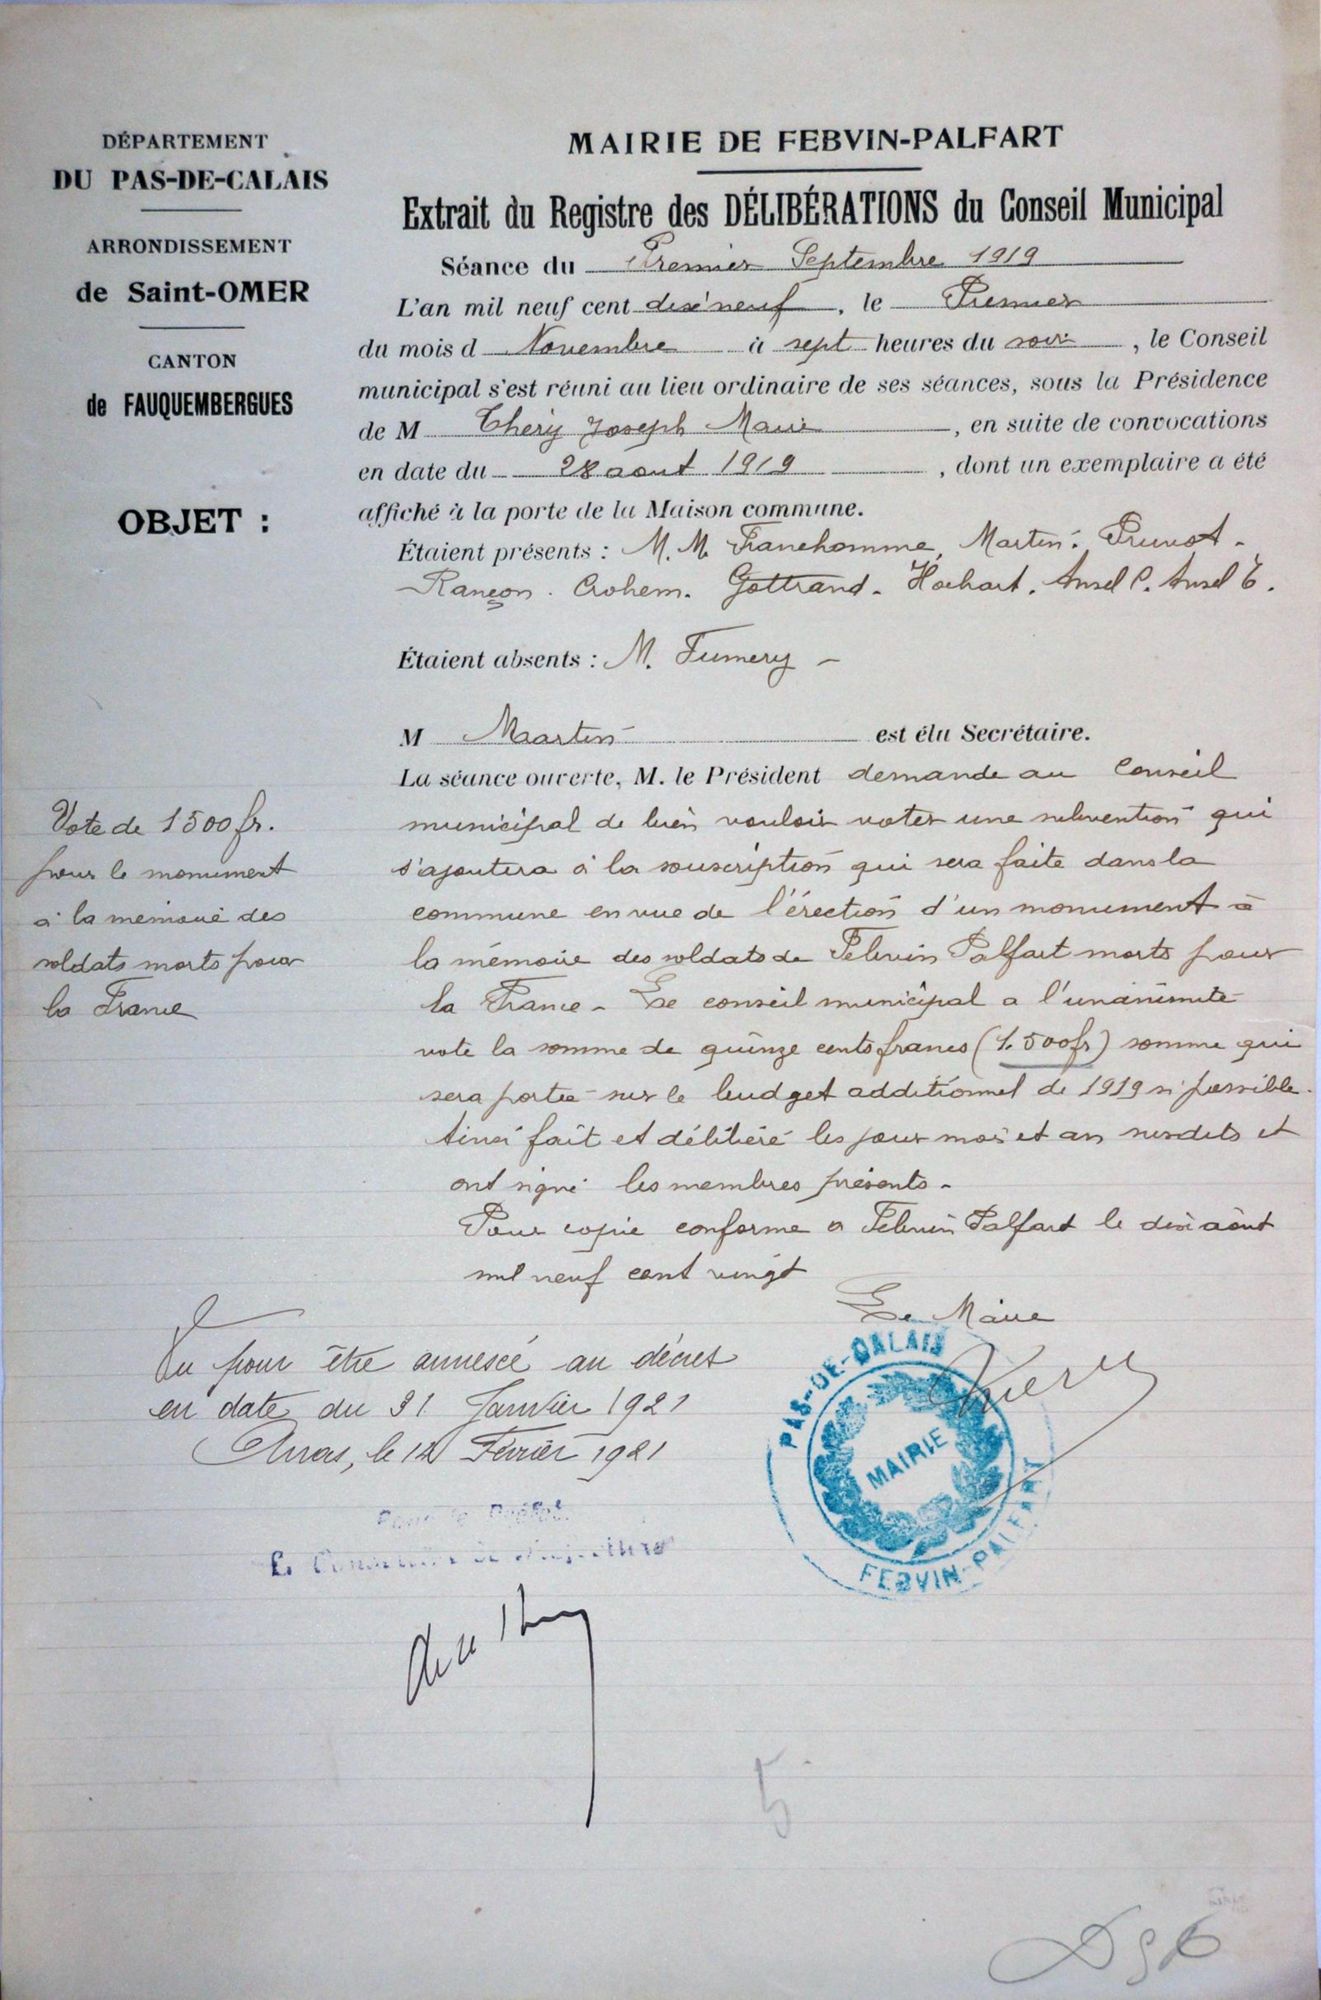 DÉPARTEMENT
DU PAS-DE-CALAIS
ARRONDISSEMENT
de Saint-OMER
CANTON
de FAUQUEMBERGUES
OBJET :
Vote de 1500 fr.
pour le monument
à la mémoire des
soldats morts pour
la France
MAIRIE DE FEBVIN-PALFART
Extrait du Registre des DÉLIBÉRATIONS du Conseil Municipal
Séance du Premier Septembre 1919
L'an mil neuf cent dix neuf, le Premier
du mois d Novembre à sept heures du soir, le Conseil
municipal s'est réuni au lieu ordinaire de ses séances, sous la Présidence
de M Théry Joseph Marie, en suite de convocations
en date du 28 août 1919, dont un exemplaire a été
affiché à la porte de la Maison commune.
Étaient présents : M. M. Franchomme, Martin. Pruvost -
Rançon. Crohem. Gottrand. Hochart. Ansel C. Ansel E.
Étaient absents : M. Fumery -
M Martin est élu Secrétaire.
La séance ouverte, M. le Président demande au Conseil
municipal de bien vouloir voter une subvention qui
s'ajoutera à la souscription qui sera faite dans la
commune en vue de l'érection d'un monument à
la mémoire des soldats de Febvin Palfart morts pour
la France - Le conseil municipal a l'unanimité
vote la somme de quinze cents francs (1.500fr) somme qui
sera portée sur le budget additionnel de 1919 si possible.
Ainsi fait et délibéré les jour mois et an susdits et
ont signé les membres présents -
Pour copie conforme a Febvin Palfart le dix août
mil neuf cent vingt
Le Maire
Théry
PAS-DE-CALAIS
MAIRIE
FEBVIN-PALFART
Vu pour être annexé au décret
en date du 31 Janvier 1921
Arras, le 12 Février 1921
Pour le Préfet
Le Conseiller de Préfecture
5